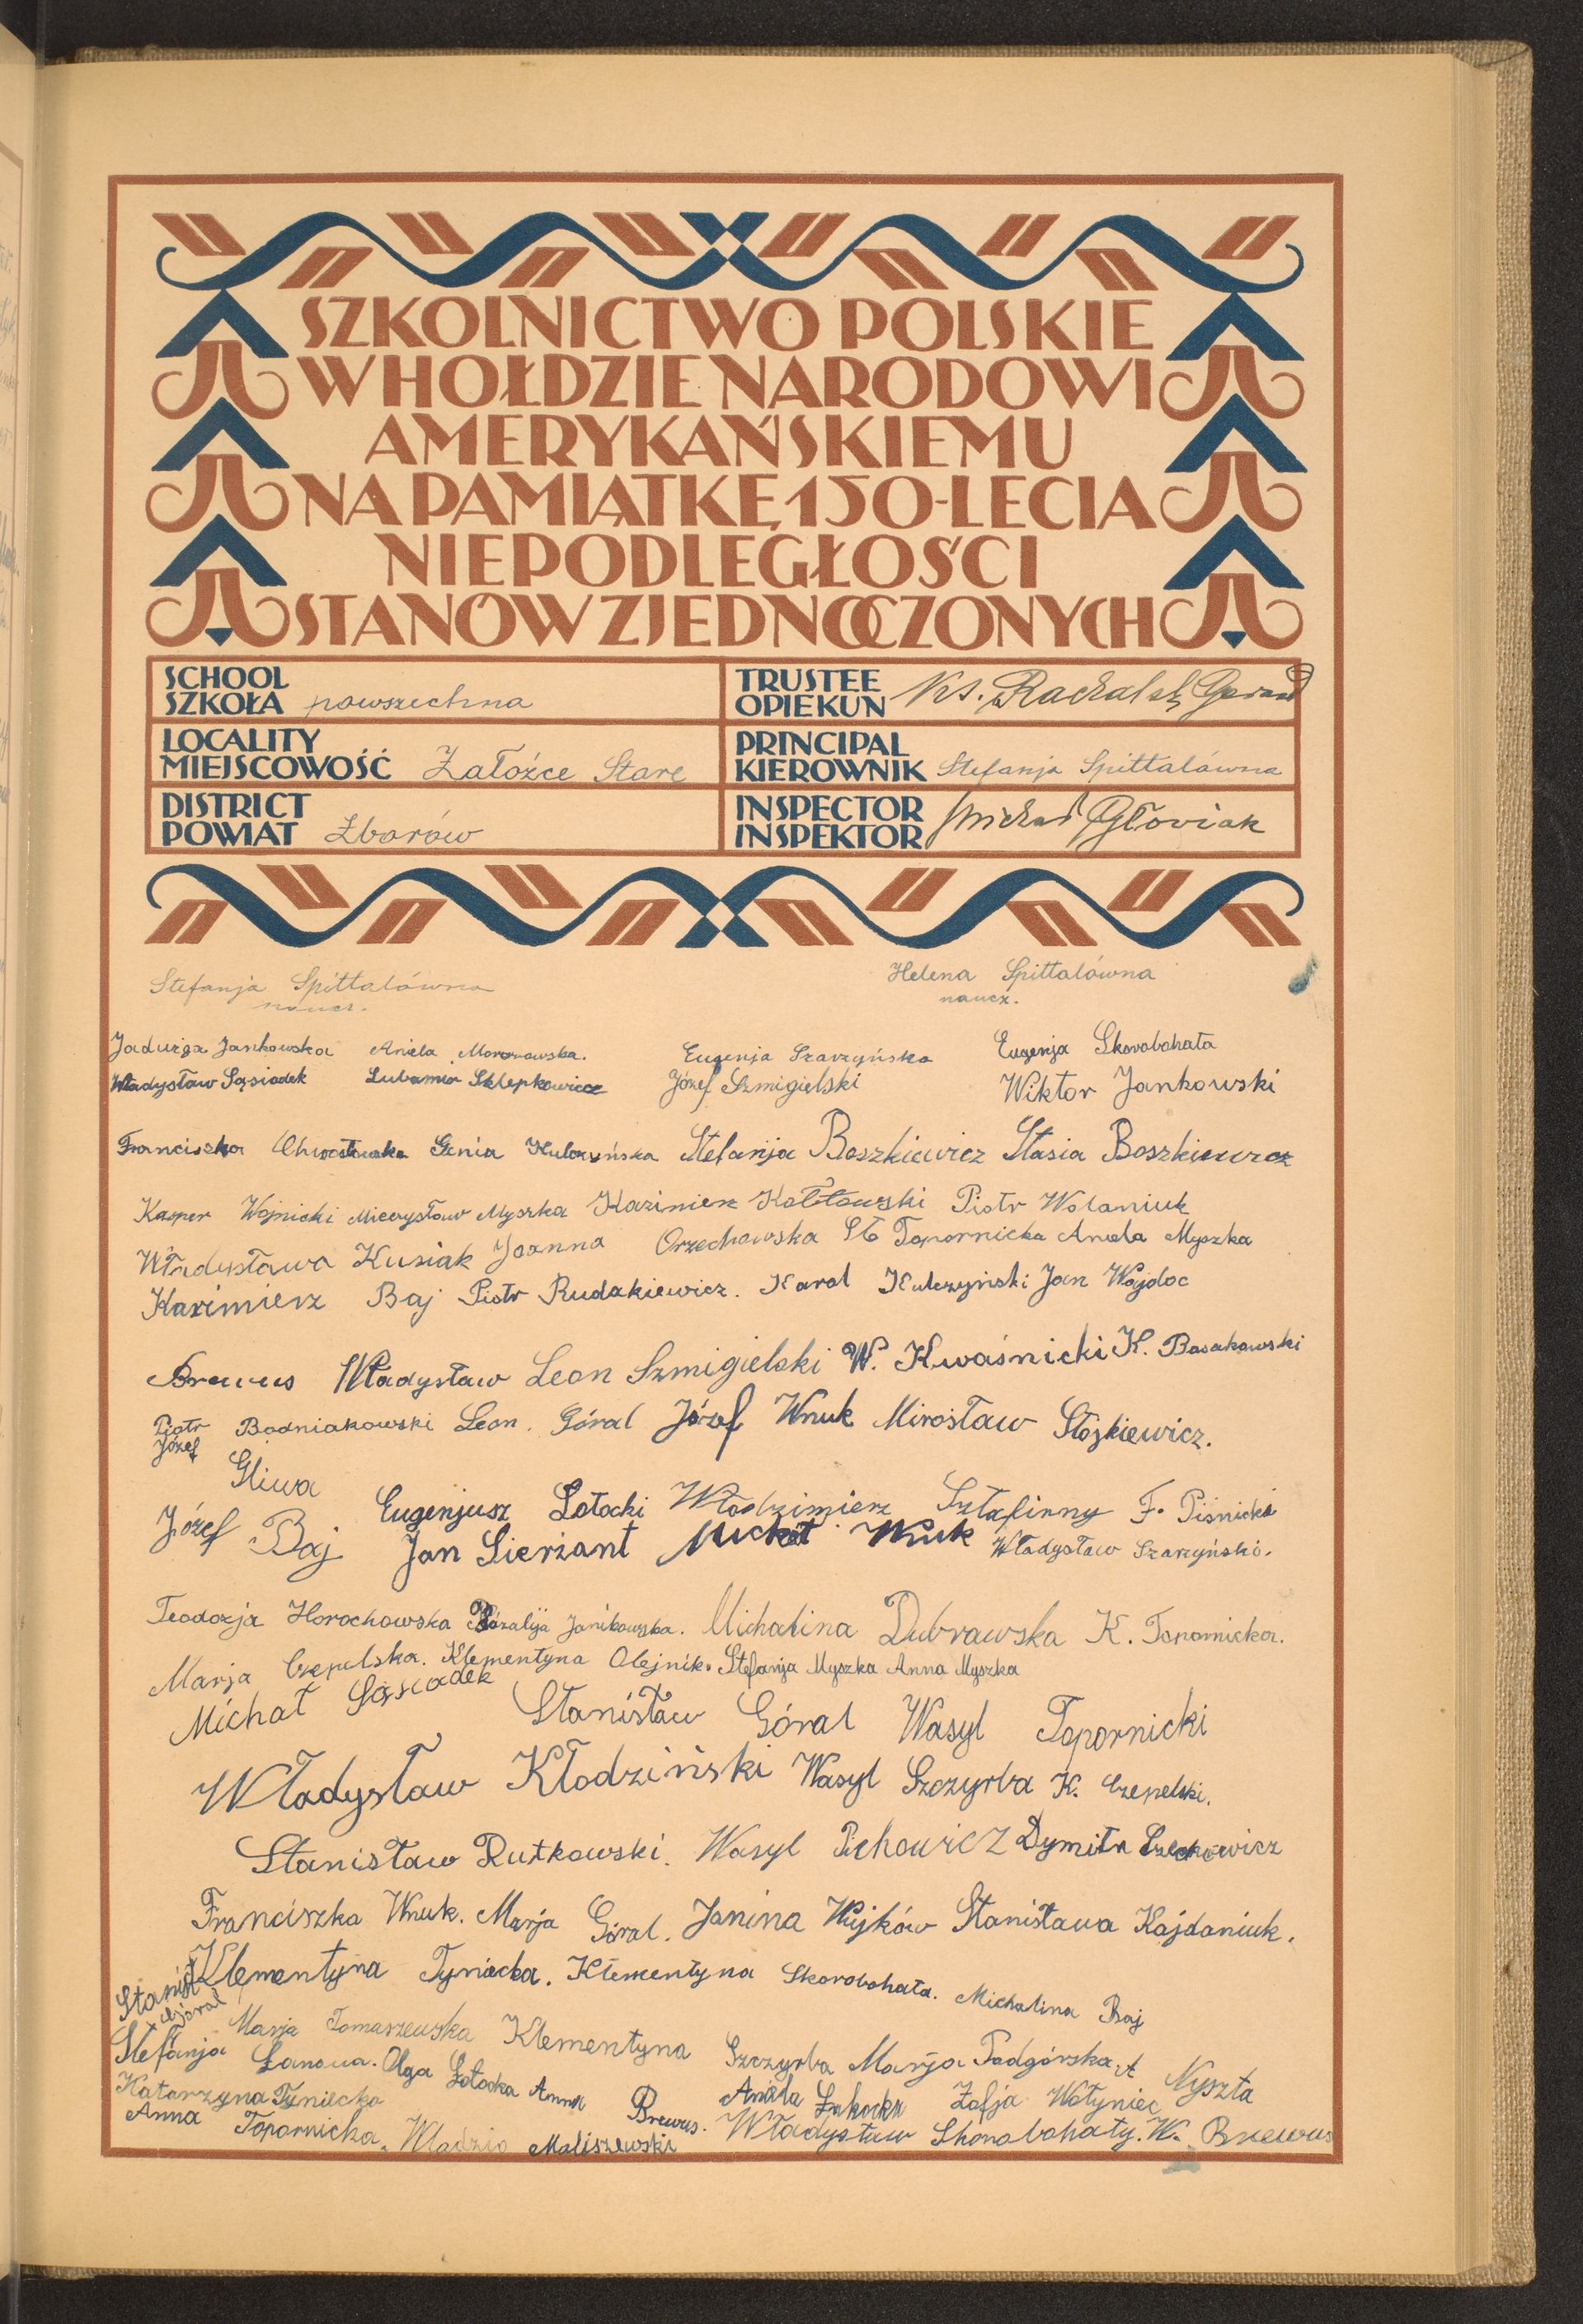 SZKOLNICTWO POLSKIE
W HOŁDZIE NARODOWI
AMERYKAŃSKIEMU
NA PAMIĄTKĘ 150-LECIA
NIEPODLEGŁOŚCI
STANÓW ZJEDNOCZONYCH
SCHOOL
SZKOŁA powszechna
TRUSTEE
OPIEKUN Ks.
LOCALITY
MIEJSCOWOŚĆ Załoźce Stare
PRINCIPAL
KIEROWNIK Stefanja Spittalówna
DISTRICT
POWIAT Zborów
INSPECTOR
INSPEKTOR Michał Głowiak
Stefanja Spittalówna Helena Spittalówna
naucz. naucz.
Jadwiga Jankowska Aniela Eugenja Szarzyńska Eugenja Skorobohata
Władysław Sąsiadek Sklepkowicz Józef Szmigielski Wiktor Jankowski
Franciszka Genia Kulczyńska Stefanja Boszkiewicz Stasia Boszkiewicz
Kasper Wojnicki Mieczysław Myszka Kazimierz Piotr Wolaniuk
Władysława Kusiak Joanna Orzechowska St Topornicka Aniela Myszka
Kazimierz Baj Piotr Rudakiewicz. Karol Kulczyński Jan Wajdoc
Brewus Władysław Leon Szmigielski W. Kwaśnicki K. Basakowski
Piotr Bodniakowski Leon. Góral Józef Wnuk Mirosław Stójkiewicz.
Józef Gliwa
Eugenjusz Łotocki Włodzimierz Sztafinny F. Piśnicki
Józef Baj Jan Sierżant Michał Wnuk Władysław Szarzyński.
Teodozja Horochowska Rozalija Janikowska. Michalina Dubrawska K. Topornicka.
Marja Czepelska. Klementyna Olejnik. Stefanja Myszka Anna Myszka
Michał Sąsiadek Stanisław Góral Wasyl Topornicki
Władysław Kłodziński Wasyl Szczyrba K. Czepelski.
Stanisław Rutkowski. Wasyl Pichowicz Dymitr
Franciszka Wnuk. Marja Góral. Janina Wujków Stanisława Kajdaniuk.
Klementyna Tyniecka. Klementyna Skorobohata. Michalina Baj
Stanisł Góral
Marja Tomaszewska Klementyna Szczyrba Marija Podgórska. A Nyszta
Stefanja Łanowa. Olga Łotocka Anna Brewus. Aniela Zofja Wołyniec
Katarzyna Tyniecka
Anna Topornicka. Władzio Maliszewski Władysław Skorobohaty. W. Brewus